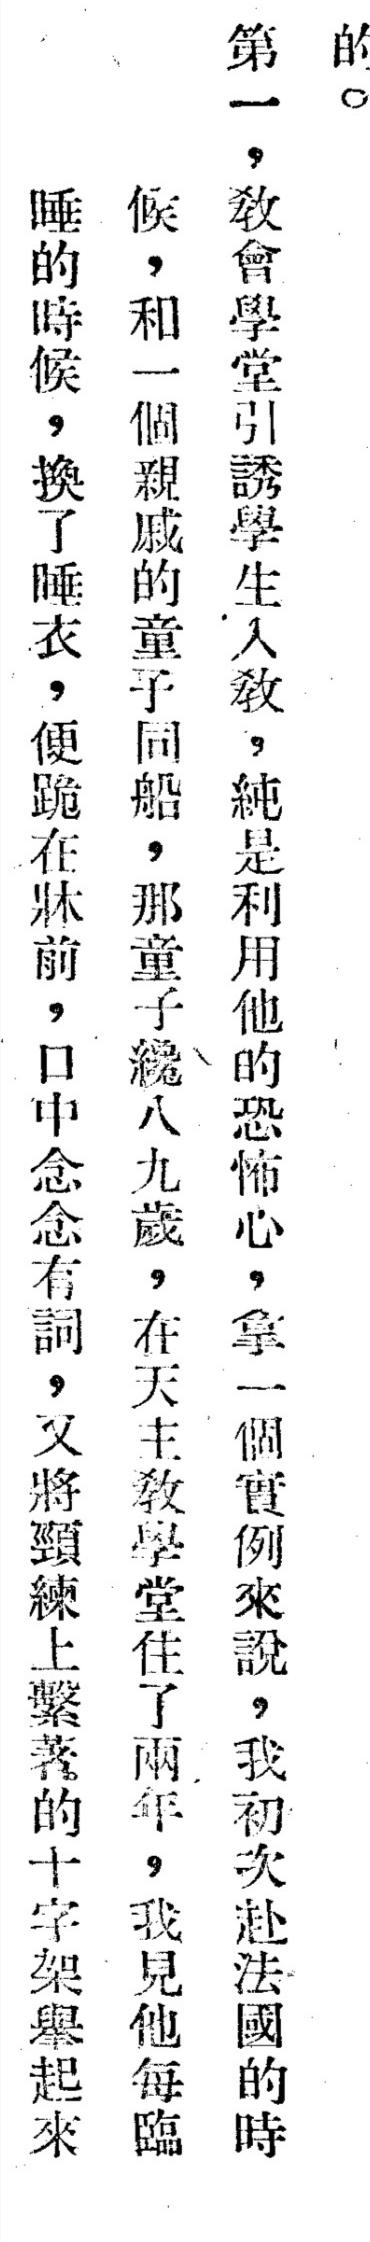 的。
第一，敎會學堂引誘學生入敎，純是利用他的恐怖心，拿一個實例來說，我初次赴法國的時
候，和一個親戚的童子同船，那童子纔八九歲，在天主敎學堂住了兩年，我見他每臨
睡的時候，換了睡衣，便跪在牀前，口中念念有詞，又將頸練上繫著的十字架舉起來